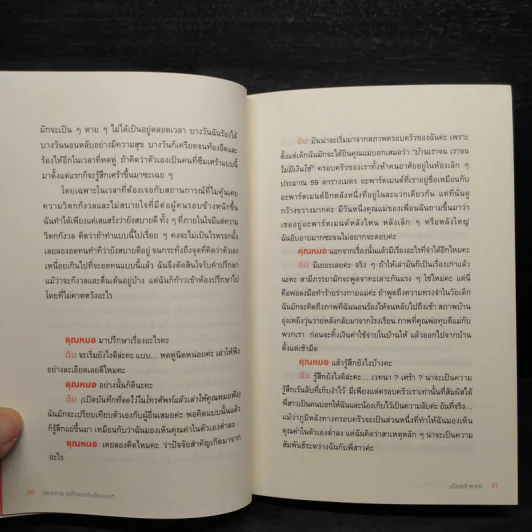 มักจะเป็น ๆ หาย ๆ ไม่ได้เป็นอยู่ตลอดเวลา บางวันฉันร้องไห้
บางวันนอนหลับอย่างมีความสุข บางวันก็เครียดจนท้องอืดและ
ร้องไห้อีกในเวลาที่หดหู่ ถ้าคิดว่าตัวเองเป็นคนที่ซึมเศร้าแบบนี้
มาตั้งแต่แรกก็จะรู้สึกเศร้าขึ้นมาซะเฉย ๆ
โดยเฉพาะในเวลาที่ต้องเจอกับสถานการณ์ที่ไม่คุ้นเคย
ความวิตกกังวลและไม่สบายใจที่มีต่อผู้คนรอบข้างหนักขึ้น
ฉันทำได้เพียงแค่แสดงแสร้งว่ายังสบายดี ทั้ง ๆ ที่ภายในใจมีแต่ความ
วิตกกังวล คิดว่าถ้าทำแบบนี้ไปเรื่อย ๆ คงจะไม่เป็นไรหรอกมั้ง
เลยลองอดทนทำทีว่ายังสบายดีอยู่ จนกระทั่งถึงจุดที่คิดว่าตัวเอง
เหนื่อยเกินไปที่จะอดทนแบบนี้แล้ว ฉันจึงตัดสินใจรับคำปรึกษา
แม้ว่าจะกังวลและตื่นเต้นอยู่บ้าง แต่ฉันก็ก้าวเข้าห้องปรึกษาไป
โดยที่ไม่คาดหวังอะไร
คุณหมอ มาปรึกษาเรื่องอะไรคะ
ฉัน จะเริ่มยังไงดีล่ะคะ แบบ... หดหู่นิดหน่อยค่ะ เล่าให้ฟัง
อย่างละเอียดเลยดีไหมคะ
คุณหมอ อย่างนั้นก็ดีนะคะ
ฉัน (เปิดบันทึกที่จดไว้ในโทรศัพท์แล้วเล่าให้คุณหมอฟัง)
ฉันมักจะเปรียบเทียบตัวเองกับผู้อื่นเสมอค่ะ พอคิดแบบนั้นแล้ว
ก็รู้สึกแย่ขึ้นมา เหมือนกับว่าฉันมองเห็นคุณค่าในตัวเองต่ำลง
คุณหมอ เคยลองคิดไหมคะ ว่าปัจจัยสำคัญเกิดมาจาก
อะไร
20 อยากตาย แต่ก็อยากกินต๊อกบกกี
ฉัน มันน่าจะเริ่มมาจากสภาพครอบครัวของฉันค่ะ เพราะ
ตั้งแต่เด็กฉันมักจะได้ยินคุณแม่บอกเสมอว่า "บ้านเราจน เราจน
ไม่มีเงินใช้" ครอบครัวของเราทั้งห้าคนอาศัยอยู่ในห้องเล็ก ๆ
ประมาณ 59 ตารางเมตร อะพาร์ตเมนต์ที่เราอยู่ชื่อเหมือนกับ
อะพาร์ตเมนต์อีกหลังหนึ่งที่อยู่ในละแวกเดียวกัน แต่ที่นั่นดู
กว้างขวางมากค่ะ มีวันหนึ่งคุณแม่ของเพื่อนฉันถามขึ้นมาว่า
เธออยู่อะพาร์ตเมนต์หลังไหน หลังเล็ก ๆ หรือหลังใหญ่
ฉันอับอายมากซะจนไม่อยากจะตอบค่ะ
คุณหมอ นอกจากเรื่องนั้นแล้วมีเรื่องอะไรที่จำได้อีกไหมคะ
ฉัน มีเยอะเลยค่ะ จริง ๆ ถ้าให้เล่ามันก็เป็นเรื่องเก่าแล้ว
นะคะ สามีภรรยามักจะพูดจาทะเลาะกันแรง ๆ ใช่ไหมคะ แต่นี่
คือพ่อลงมือทำร้ายร่างกายแม่ค่ะ ถ้าพูดถึงความทรงจำในวัยเด็ก
ฉันมักจะคิดถึงภาพที่ฉันนอนร้องไห้จนหลับไปถึงเช้า สภาพบ้าน
ยุ่งเหยิงวุ่นวายหลังกลับมาจากโรงเรียน ภาพที่คุณพ่อทุบตีแม่กับ
พวกเรา ก่อนจะทิ้งเงินค่าใช้จ่ายในบ้านให้ แล้วออกไปจากบ้าน
ตั้งแต่เช้ามืด
คุณหมอ แล้วรู้สึกยังไงบ้างคะ
ฉัน รู้สึกยังไงดีล่ะคะ... เวทนา ? เศร้า ? น่าจะเป็นความ
รู้สึกเร้นลับที่เก็บงำไว้ มีเพียงแต่ครอบครัวเราเท่านั้นที่สัมผัสได้
พี่สาวเป็นคนบอกให้ฉันและน้องเก็บไว้เป็นความลับค่ะ อันที่จริง...
แม้ว่าภูมิหลังทางครอบครัวจะเป็นส่วนหนึ่งที่ทำให้ฉันมองเห็น
คุณค่าในตัวเองต่ำลง แต่ฉันคิดว่าสาเหตุหลัก ๆ น่าจะเป็นความ
สัมพันธ์ระหว่างฉันกับพี่สาวค่ะ
แบ็กเซฮี 21